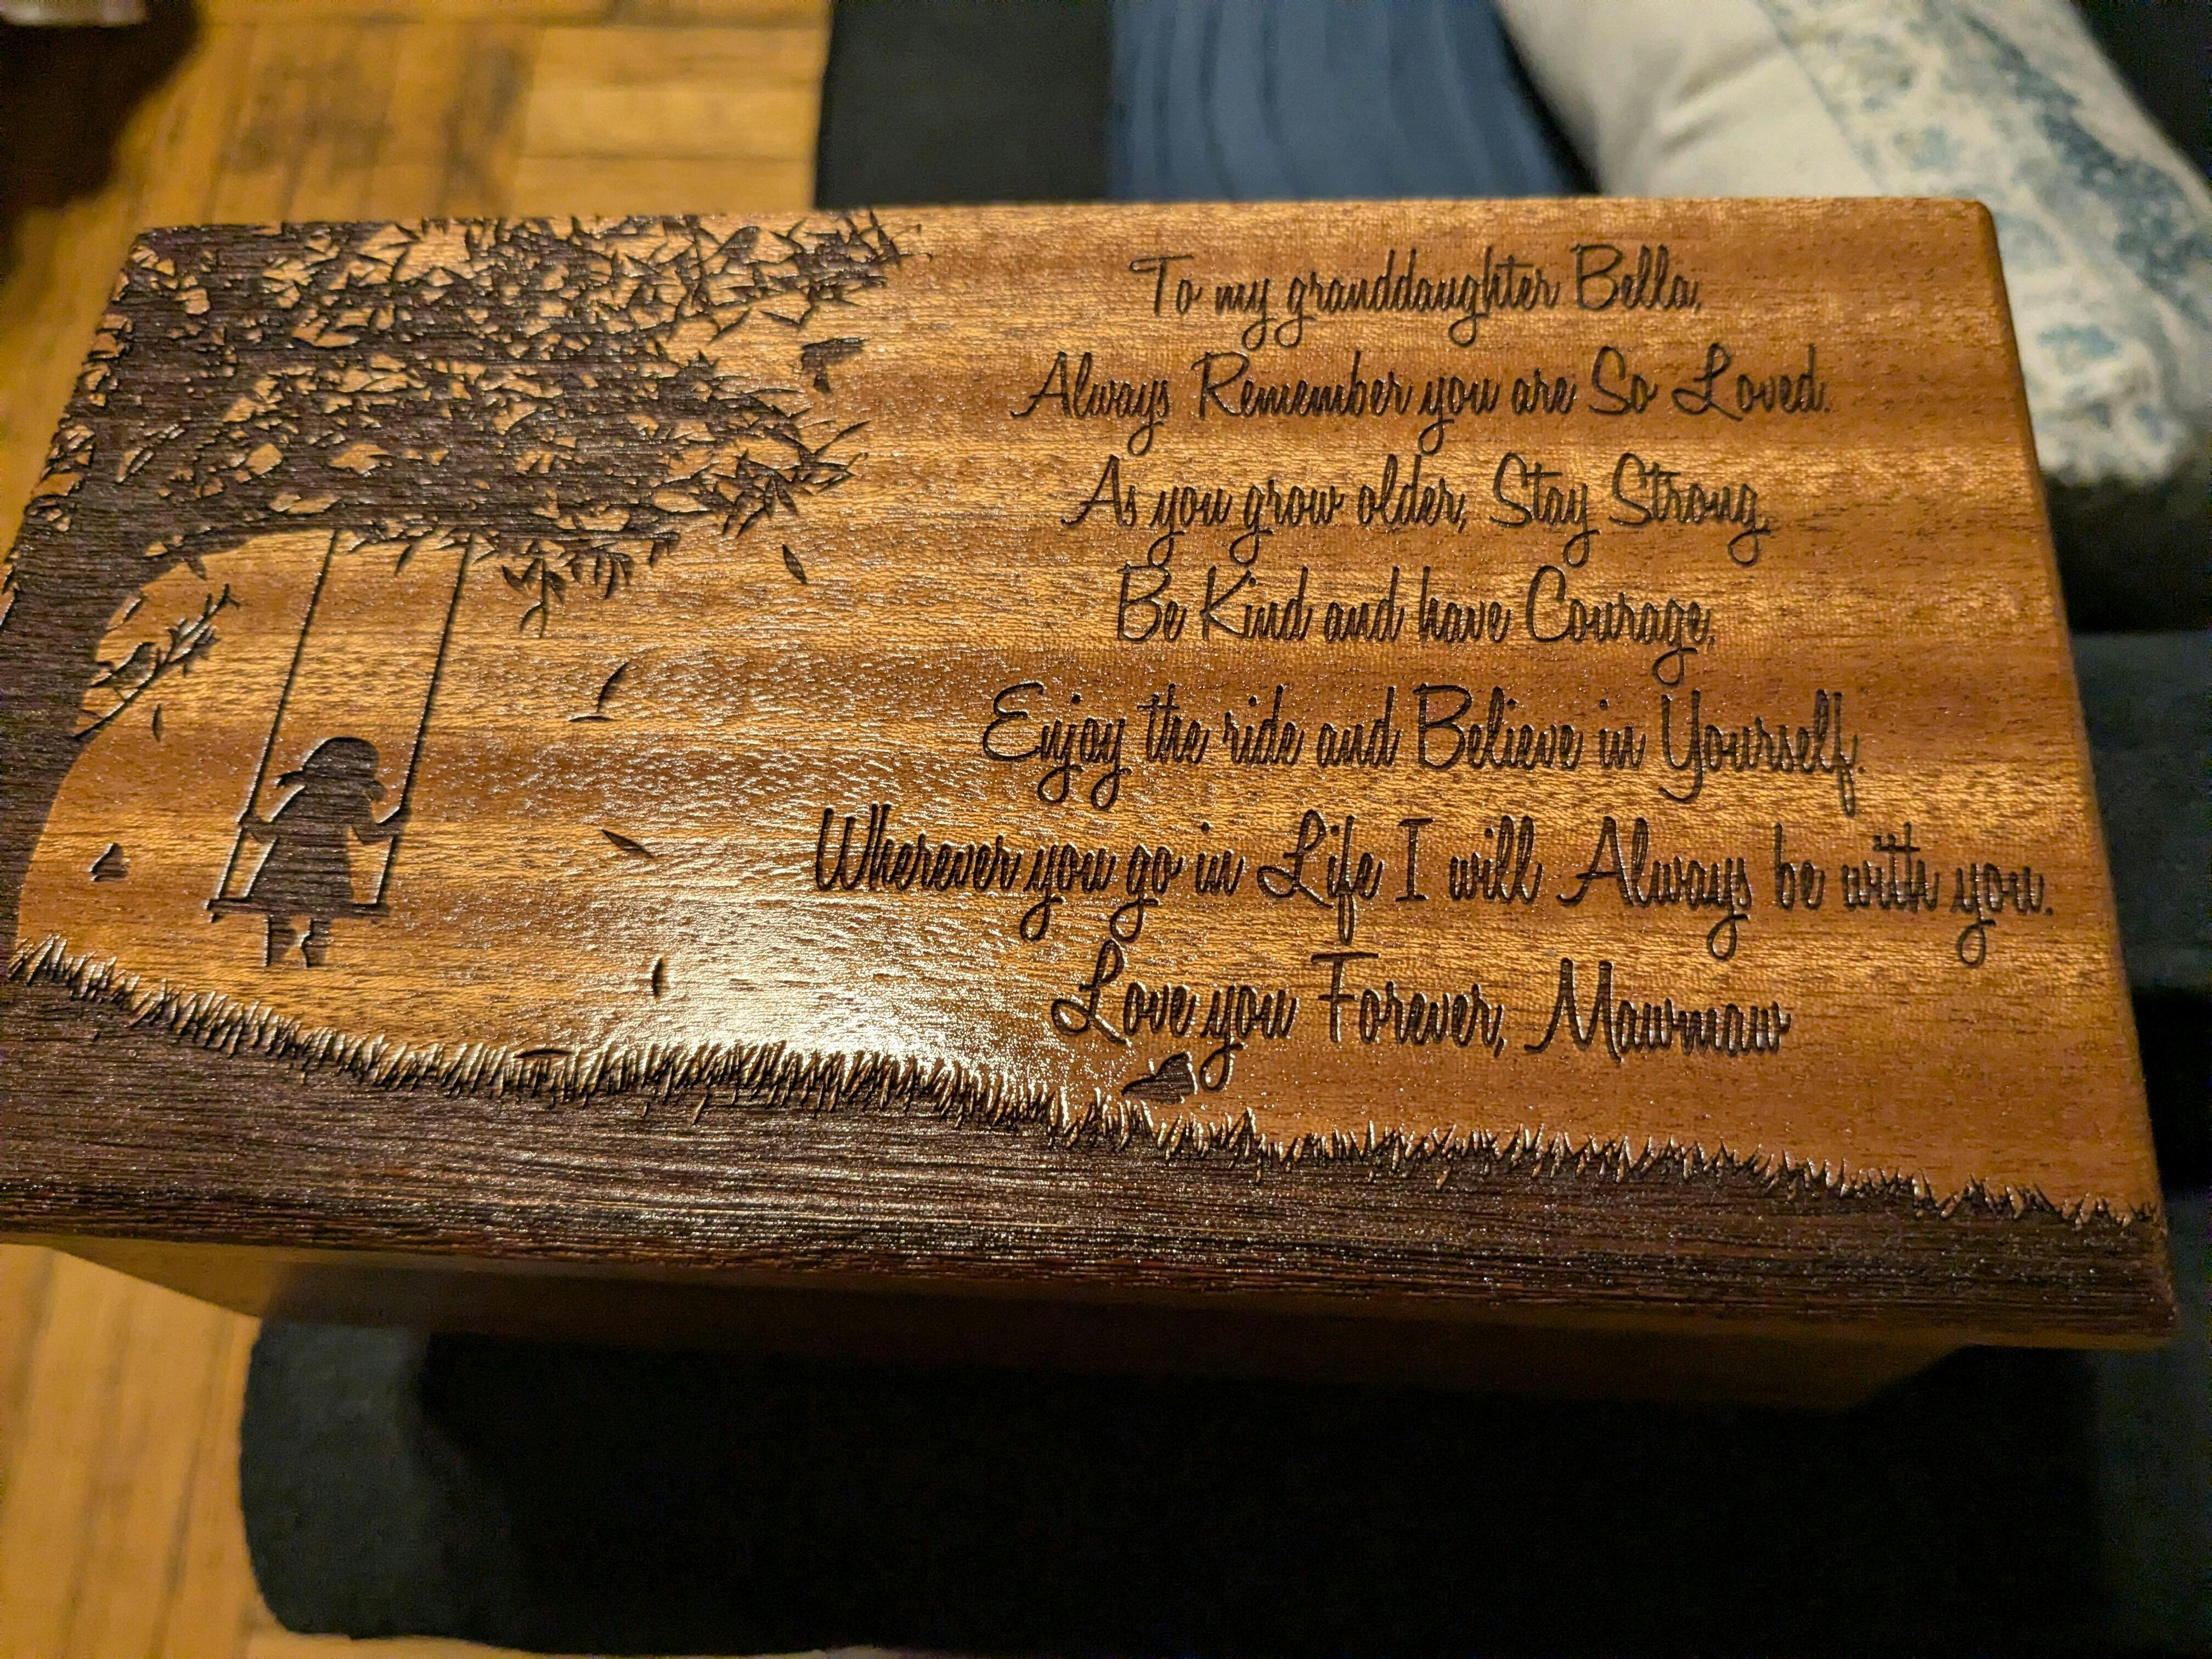 To my granddaughter Bella,
Always Remember you are So Loved.
As you grow older, Stay Strong,
Be Kind and have Courage,
Enjoy the ride and Believe in Yourself.
Wherever you go in Life I will Always be with you.
Love you Forever, Mawmaw